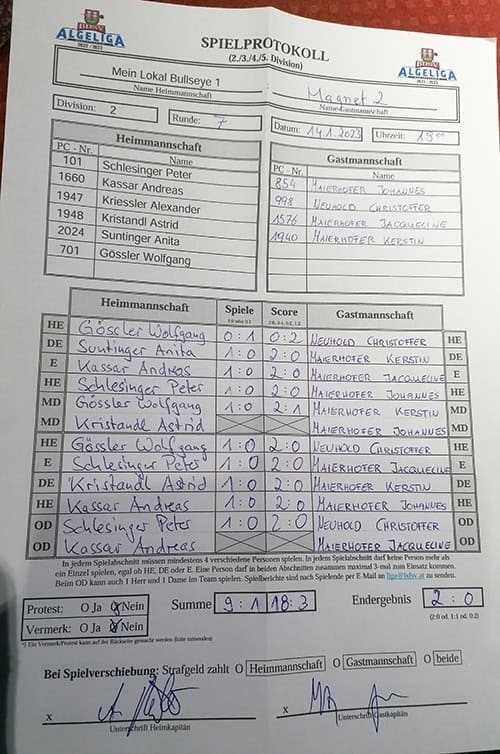 BDSV
ALGELIGA
2022 / 2023
SPIELPROTOKOLL
(2./3./4./5. Division)
BDSV
ALGELIGA
2022 / 2023
Mein Lokal Bullseye 1 : Magnet 2
Name Heimmannschaft Name Gastmannschaft
Division: 2 Runde: 7 Datum: 14.1.2023 Uhrzeit: 19:00
Heimmannschaft
PC - Nr. Name
101 Schlesinger Peter
1660 Kassar Andreas
1947 Kriessler Alexander
1948 Kristandl Astrid
2024 Suntinger Anita
701 Gössler Wolfgang
Gastmannschaft
PC - Nr. Name
854 MAIERHOFER JOHANNES
998 NEUHOLD CHRISTOFFER
1576 MAIERHOFER JACQUELINE
1940 MAIERHOFER KERSTIN
Heimmannschaft Spiele Score Gastmannschaft
1:0 oder 0:1 2:0, 2:1, 1:2, 0:2
HE Gössler Wolfgang 0:1 0:2 NEUHOLD CHRISTOFFER HE
DE Suntinger Anita 1:0 2:0 MAIERHOFER KERSTIN DE
E Kassar Andreas 1:0 2:0 MAIERHOFER JACQUELINE E
HE Schlesinger Peter 1:0 2:0 MAIERHOFER JOHANNES HE
MD Gössler Wolfgang 1:0 2:1 MAIERHOFER KERSTIN MD
MD Kristandl Astrid MAIERHOFER JOHANNES MD
HE Gössler Wolfgang 1:0 2:0 NEUHOLD CHRISTOFFER HE
E Schlesinger Peter 1:0 2:0 MAIERHOFER JACQUELINE E
DE Kristandl Astrid 1:0 2:0 MAIERHOFER KERSTIN DE
HE Kassar Andreas 1:0 2:0 MAIERHOFER JOHANNES HE
OD Schlesinger Peter 1:0 2:0 NEUHOLD CHRISTOFFER OD
OD Kassar Andreas MAIERHOFER JACQUELINE OD
In jedem Spielabschnitt müssen mindestens 4 verschiedene Personen spielen. In jedem Spielabschnitt darf keine Person mehr als
ein Einzel spielen, egal ob HE, DE oder E. Eine Person darf in beiden Abschnitten zusammen maximal 3-mal zum Einsatz kommen.
Beim OD kann auch 1 Herr und 1 Dame im Team spielen. Spielberichte sind nach Spielende per E-Mail an liga@bdsv.at zu senden.
Protest: O Ja O Nein Summe 9:1 18:3 Endergebnis 2:0
Vermerk: O Ja O Nein (2:0 od. 1:1 od. 0:2)
*) Ein Vermerk/Protest kann auf der Rückseite gemacht werden (bitte ankreuzen)
Bei Spielverschiebung: Strafgeld zahlt O Heimmannschaft O Gastmannschaft O beide
x x
Unterschrift Heimkapitän Unterschrift Gastkapitän